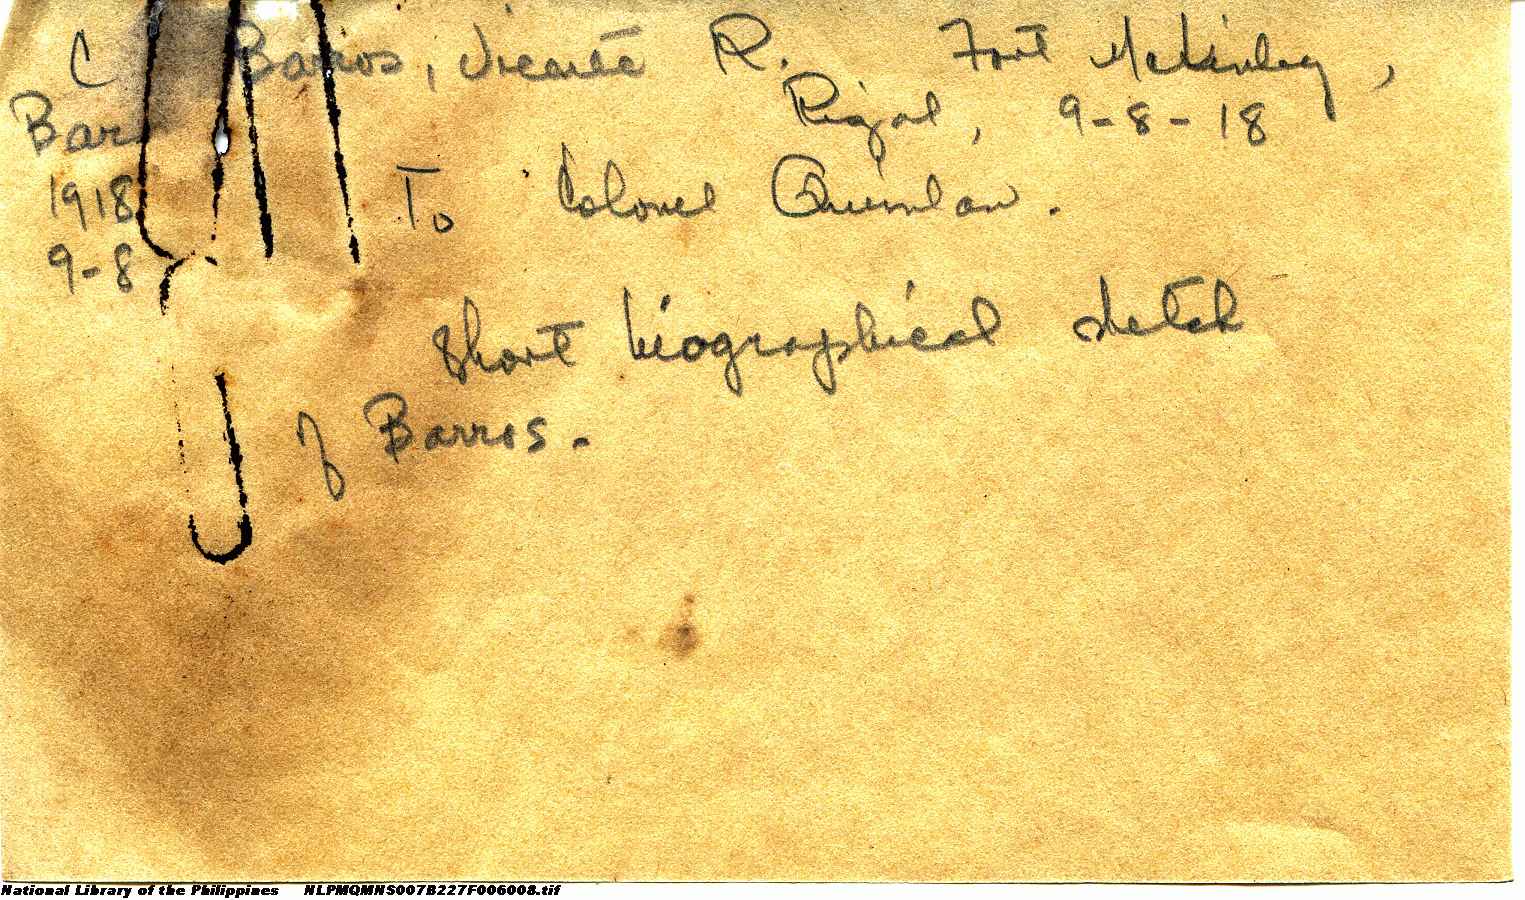 C Barrios, Vicente R. Fort McKinley,
Bar Rizal, 9-8-18
1918 To Colonel Quinlan.
9-8
Short biographical sketch
of Barros.
National Library of the Philippines NLPMQMNS007B227F006008.tif